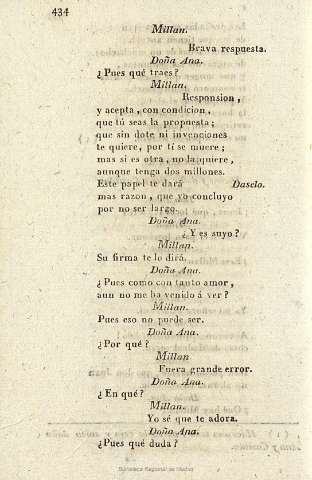 434
Millan.
Brava respuesta.
Doña Ana.
¿Pues qué traes?
Millan.
Responsion,
y acepta, con condicion,
que tú seas la propuesta;
que sin dote ni invenciones
te quiere, por tí se muere;
mas si es otra, no la quiere,
aunque tenga dos millones.
Este papel te dará Daselo.
mas razon, que yo concluyo
por no ser largo.
Doña Ana.
¿Y es suyo?
Millan.
Su firma te lo dirá.
Doña Ana.
¿Pues como con tanto amor,
aun no me ha venido á ver?
Millan.
Pues eso no puede ser.
Doña Ana.
¿Por qué?
Millan
Fuera grande error.
Doña Ana.
¿En qué?
Millan.
Yo sé que te adora.
Doña Ana.
¿Pues qué duda?
Biblioteca Regional de Madrid